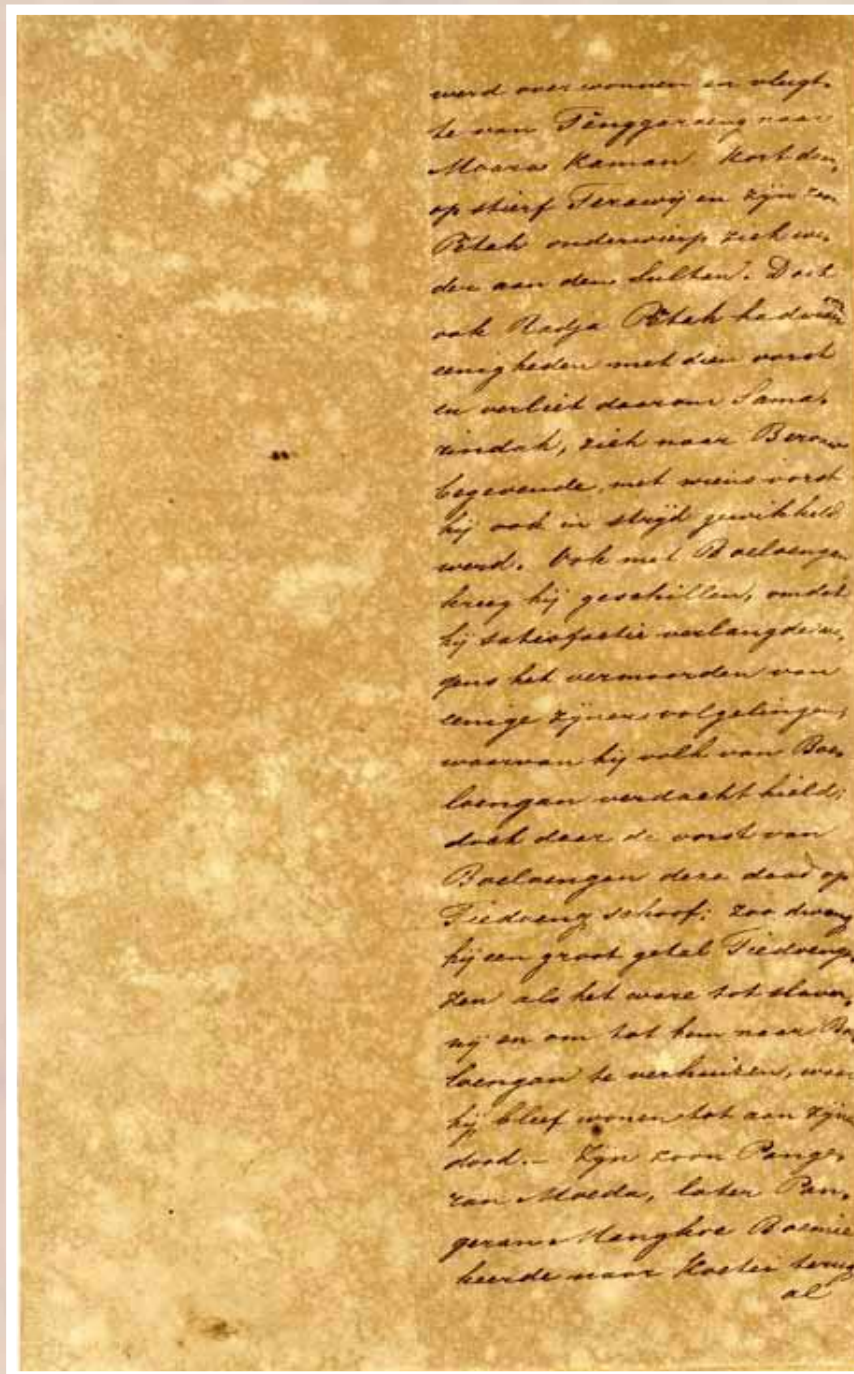 werd overwonnen en vlugt,
te van Tenggaroeng naar
Moara Kaman. Kort daar,
op stierf Terawij en zijn zoon
Pětah onderwierp zich we,
der aan den Sultan. Doch
ook Radja Pětah had
eenigheden met dien vorst
en verliet daarom Sama,
rindah, zich naar Berouw
begevende, met wiens vorst
hij ook in strijd gewikkeld
werd. Ook met Boeloengan
kreeg hij geschillen, omdat
hij satisfactie verlangde we,
gens het vermoorden van
eenige zijner volgelingen,
waarvan hij volk van Boe,
loengan verdacht hield;
doch daar de vorst van
Boeloengan deze daad op
Tiedoeng schoof; zoo dwong
hij een groot getal Tiedoenge,
zen als het ware tot slaver,
nij en om tot hem naar Boe
loengan te verhuizen, waar
hij bleef wonen tot aan zijn
dood.– Zijn zoon Pange,
ran Moeda, later Pan,
geran Mangkoe Boemie
keerde naar Koetei terug
al